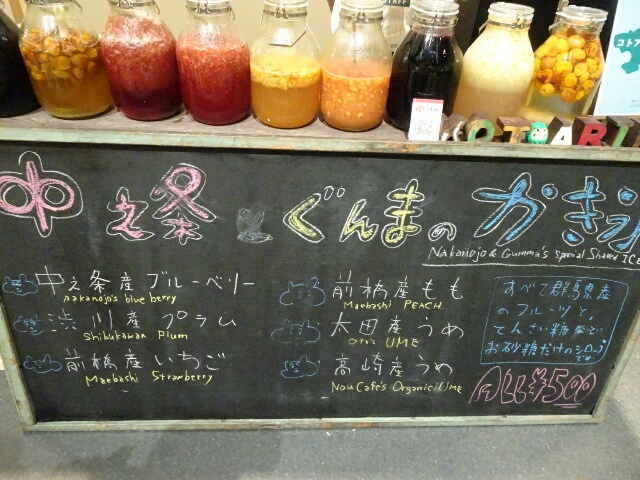 中之条 & ぐんまの かき氷
Nakanojo & Gunma's Special Shaved ICE
中之条産 ブルーベリー
nakanojo's blue berry
渋川産 プラム
Shibukawan Plum
前橋産 いちご
Maebashi Strawberry
前橋産 もも
Maebashi PEACH
太田産 うめ
Ota's UME
高崎産 うめ
NouCafe's Organic UME
すべて群馬県産
のフルーツと、
てんさい糖など
お砂糖だけのシロップ
です
ALL ¥500